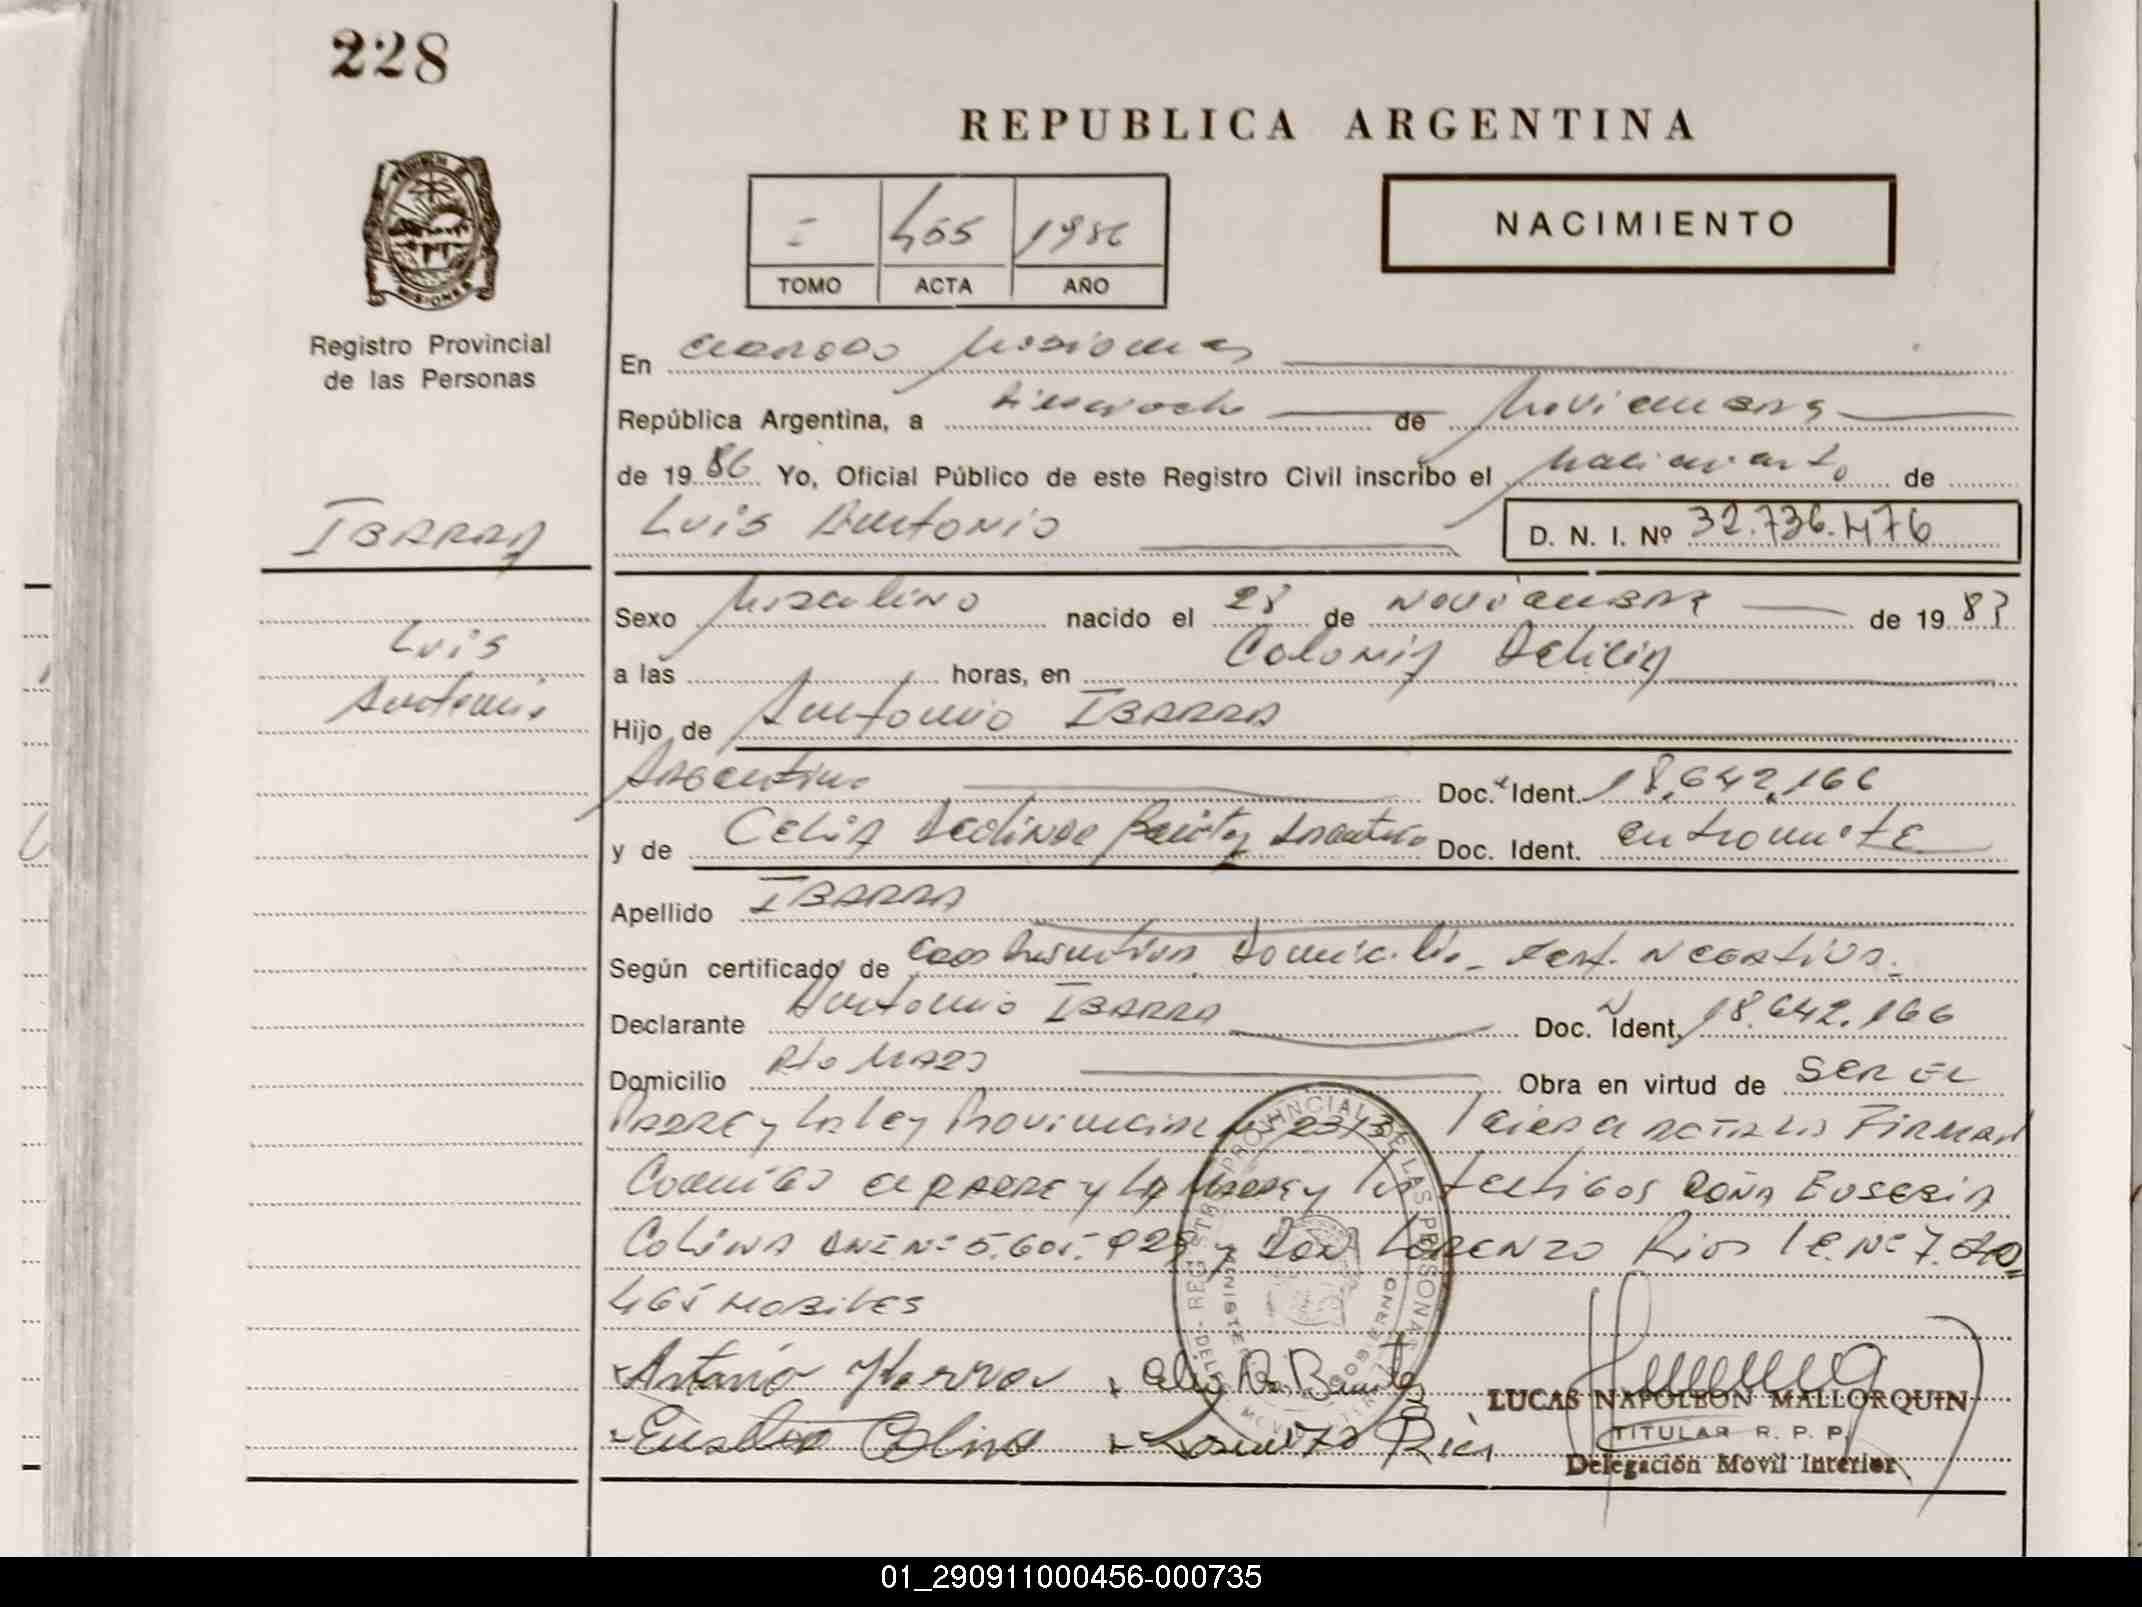 228
REPUBLICA ARGENTINA
NACIMIENTO
I 455 1986
TOMO ACTA AÑO
MISIONES
Registro Provincial
de las Personas
En Misiones
República Argentina, a dieciocho de Noviembre
de 1986 Yo, Oficial Público de este Registro Civil inscribo el Nacimiento de
IBARRA
Luis Antonio
D. N. I. Nº 32.736.476
Sexo Masculino nacido el 28 de Noviembre de 1983
Luis
Antonio
a las horas, en Colonia Delicia
Hijo de Antonio IBARRA
Argentino Doc. Ident. 18.642.166
y de Celia Benitez Doc. Ident.
Apellido IBARRA
Según certificado de Domicilio - Cert. Negativo.
Declarante Antonio IBARRA Doc. Ident. 18.642.166
Domicilio Obra en virtud de SER EL
PADRE y la ley Provincial Nº Leida el acta la FIRMAN
Conmigo el PADRE y la Madre y los testigos DOÑA EUSEBIA
COLINA DNI Nº 5.605.929 y DON LORENZO Rios L.E. Nº 7.
465
REGISTRO PROVINCIAL DE LAS PERSONAS
MINISTERIO GOBIERNO
Antonio Ibarra Benitez
Eusebia Colina Lorenzo Rios
LUCAS NAPOLEON MALLORQUIN
TITULAR R. P. P.
Delegación Movil Interior
01_290911000456-000735